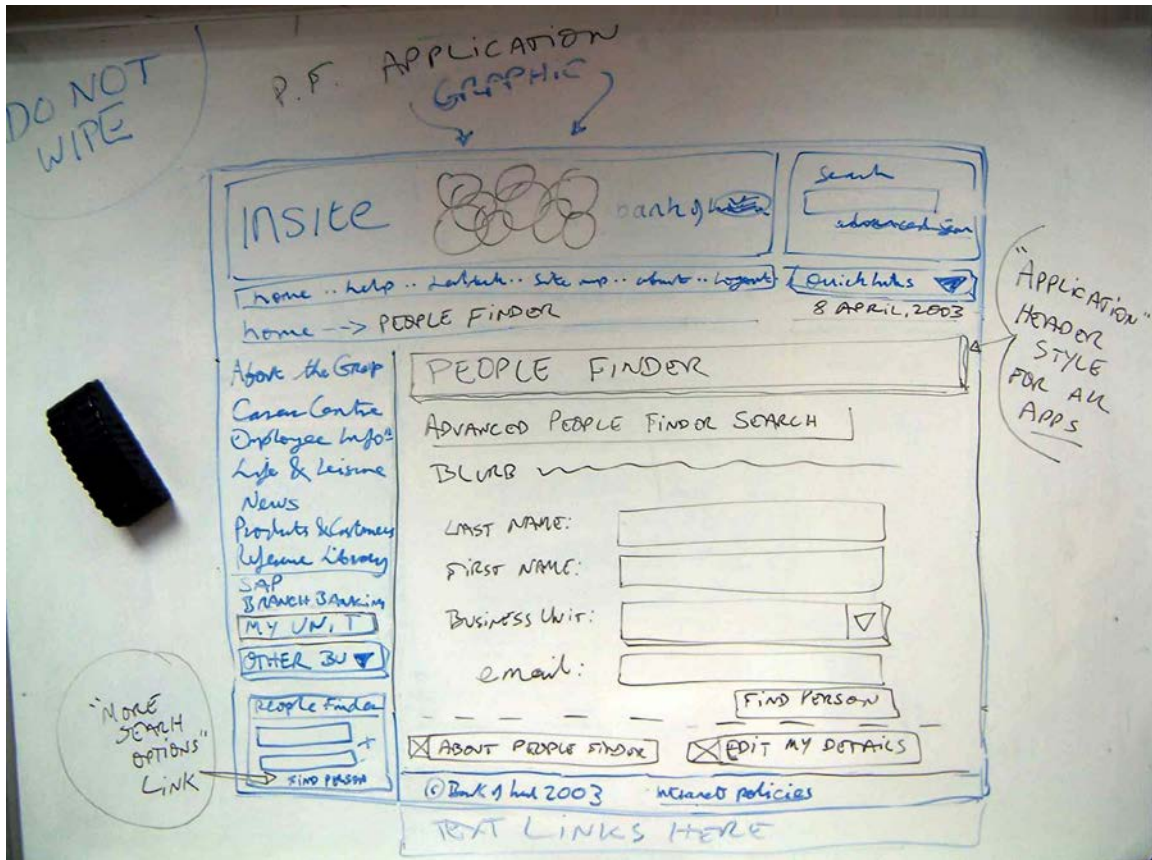 DO NOT
WIPE
P.F. APPLICATION
GRAPHIC
INSITE
bank of
Search
advanced
home .. help .. .. Site map .. about .. logout
Quick links
home --> PEOPLE FINDER
8 APRIL, 2003
"APPLICATION"
HEADER
STYLE
FOR ALL
APPS
About the Group
Career Centre
Employee Info
Life & Leisure
News
Products & Customers
Reference Library
SAP
BRANCH BANKING
MY UNIT
OTHER BU
People Finder
+
FIND PERSON
"MORE
SEARCH
OPTIONS"
LINK
PEOPLE FINDER
ADVANCED PEOPLE FINDER SEARCH
BLURB
LAST NAME:
FIRST NAME:
BUSINESS UNIT:
email:
FIND PERSON
ABOUT PEOPLE FINDER
EDIT MY DETAILS
© Bank of 2003 intranet policies
TEXT LINKS HERE